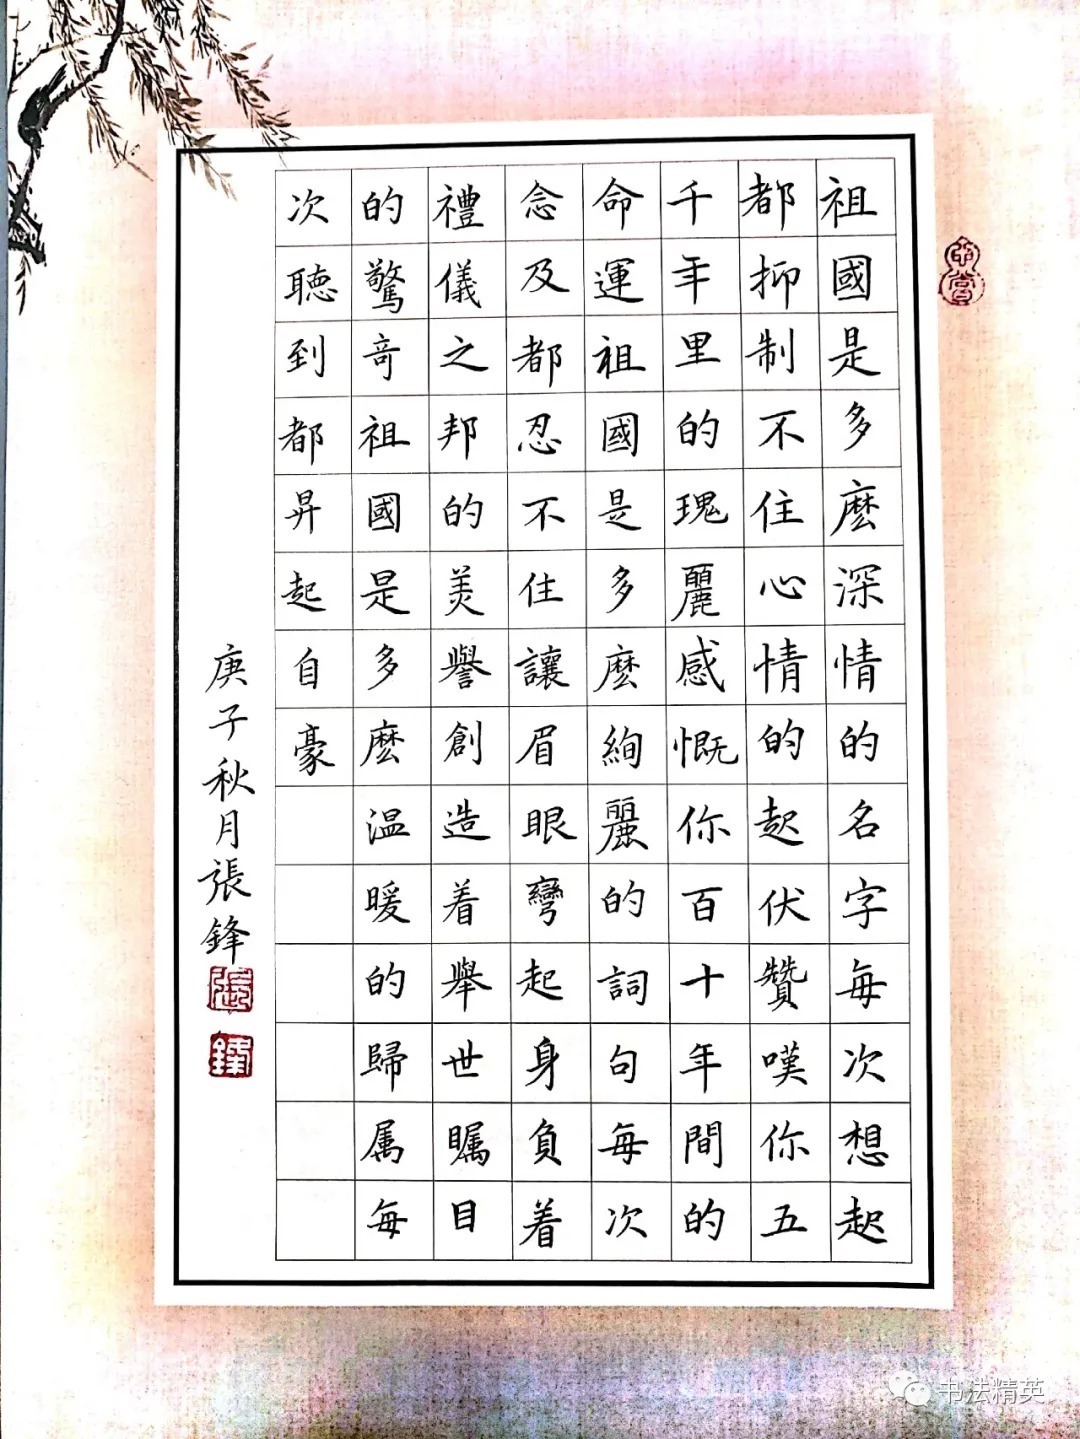 祖國是多麽深情的名字每次想起
都抑制不住心情的起伏贊嘆你五
千年里的瑰麗感慨你百十年間的
命運祖國是多麽絢麗的詞句每次
念及都忍不住讓眉眼彎起身負着
禮儀之邦的美譽創造着舉世矚目
的驚奇祖國是多麽温暖的歸属每
次聽到都昇起自豪
庚子秋月張鋒
張
鋒
书法精英